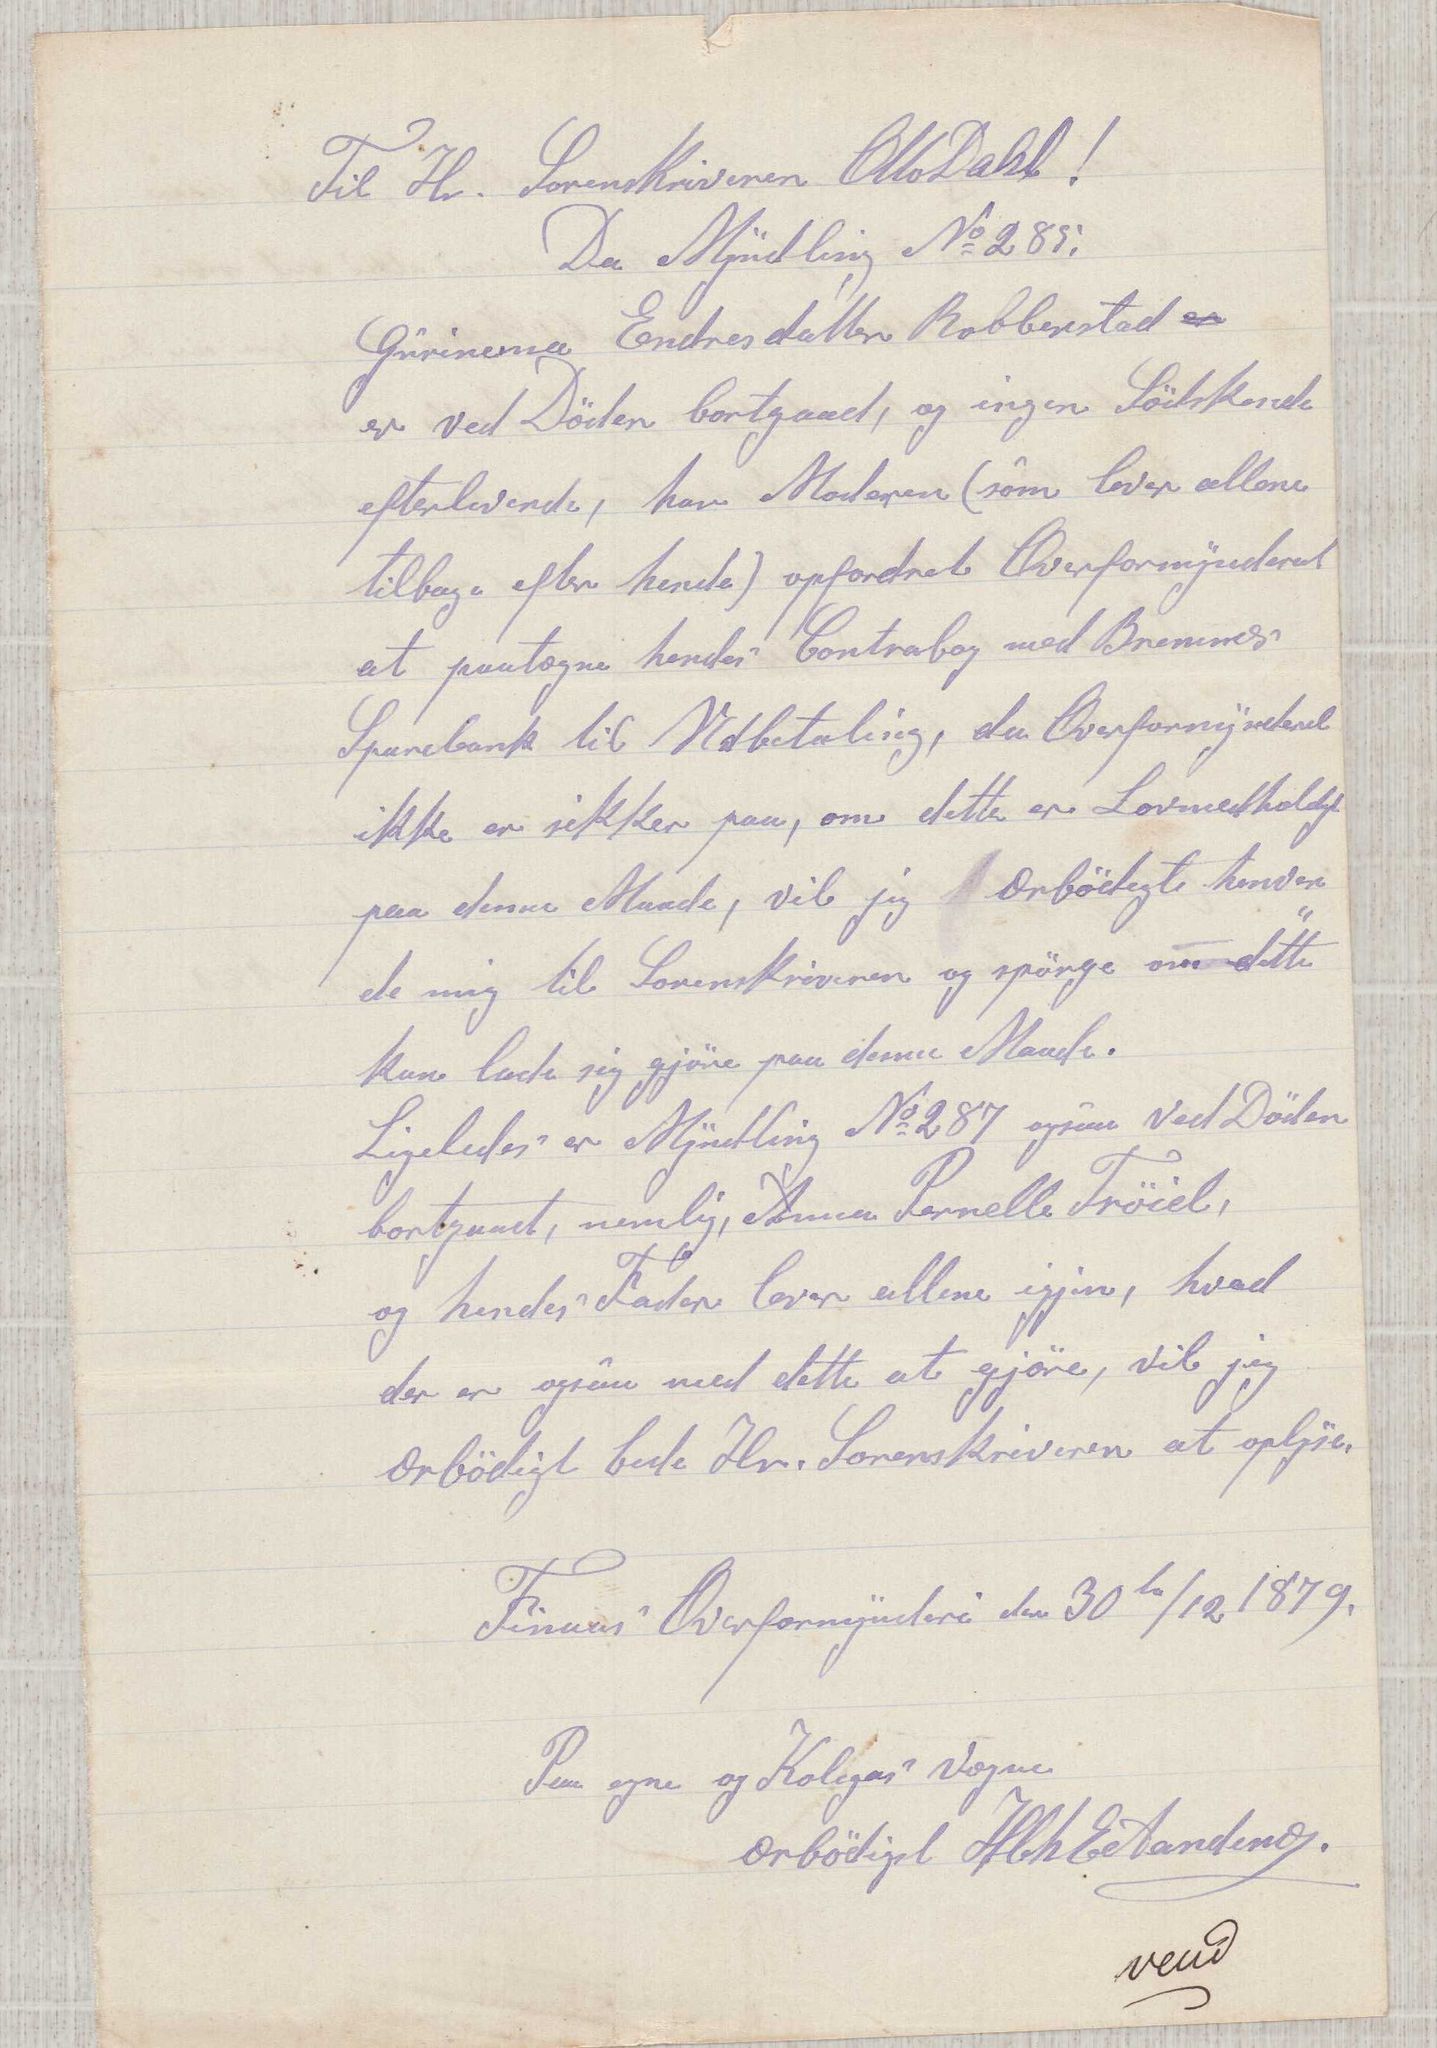 Til Hr. Sorenskriveren Otto Dahl!
Da Myndling No 285:
Gurinema Endresdatter Robberstad er
er ved Döden bortgaad, og ingen Södskende
efterlevende, har Moderen (som lever allene
tilbage efter hende) opfordret Overformynderiet
at paategne hendes Contrabog med Bremnes
Sparebank til Udbetaling, da Overformynderiet
ikke er sikker paa, om dette er Lovmedholdgt
paa denne Maade, vil jeg ærbödigt henven
de mig til Sorenskriveren og spörge om dette
kan lade sig gjöre paa denne Maade.
Ligeledes er Myndling No 287 ogsaa ved Döden
bortgaaet, nemlig, Anna Pernelle Tröiel,
og hendes Fader lever allene igjen, hvad
der er ogsaa med dette at gjöre, vil jeg
ærbödigt bede Hr. Sorenskriveren at oplyse.
Finnaas Overformynderi den 30te/12 1879.
Paa egne og Kolegas Vægne
ærbödigst
vend